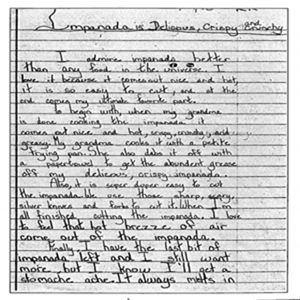 Empanada is Delicious, Crispy and Crunchy
I admire impanada better
than any food in the universe. I
love it because it comes out nice and hot,
it is so easy to cut, and at the
end comes my ultimate favorite part.
To begin with, when my grandma
is done cooking the impanada it
comes out nice and hot, crispy, crunchy, and
greasy. My grandma cooks it with a petite
frying pan. She also dabs it off with
a papertowel to get the abundent grease
off my delicious, crispy impanada.
Also, it is super duper easy to cut
the impanada. We use those sharp, scary,
silver knives and forks to cut it. When I'm
all finished cutting the impanada. I love
to feel that hot brezze of air
come out of the impanada.
Finally, I have the last bit of
impanada left and I still want
more, but I know I'll get a
stomache ache. It always melts in